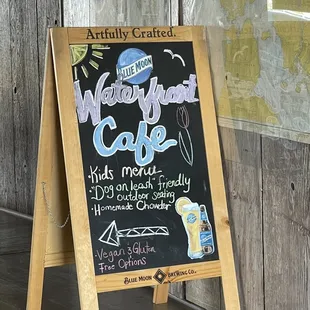 Artfully Crafted.
BLUE MOON
Waterfront
Cafe
·Kids menu
·"Dog on leash" friendly
outdoor seating
·Homemade Chowder
·Vegan & Gluten
Free Options
BLUE MOON BREWING CO.